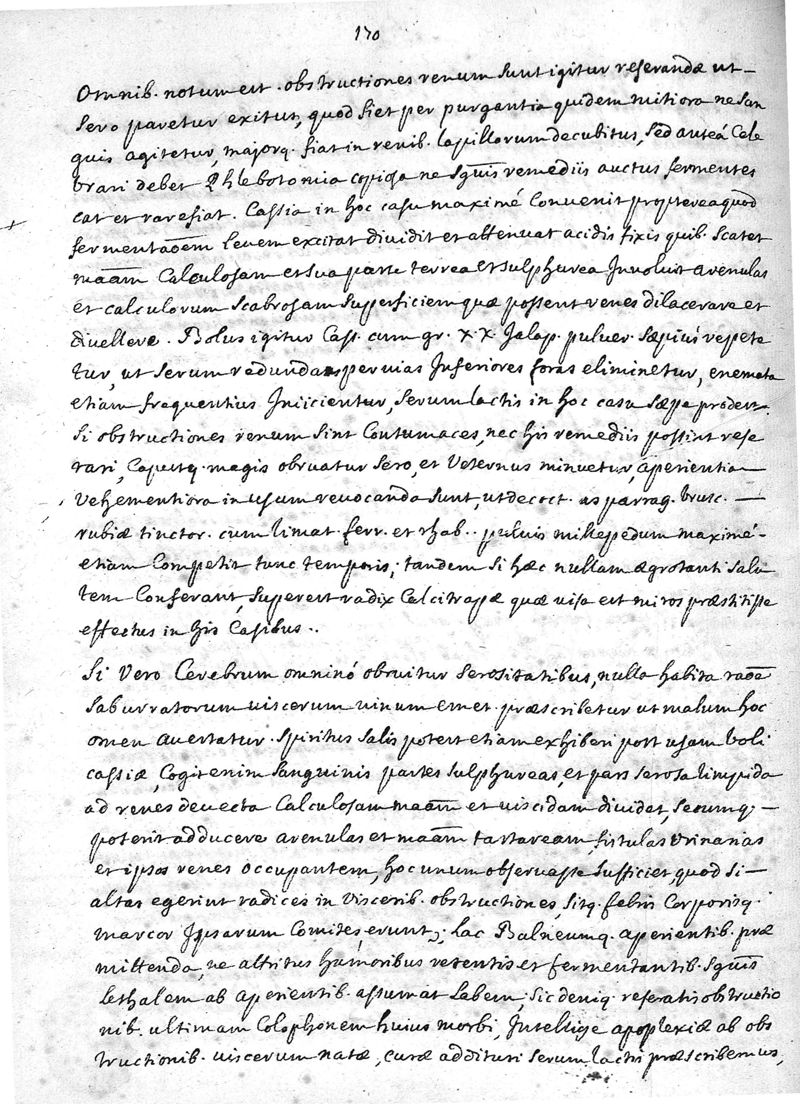 170
Omnib. notum est. obstructiones renum sunt igitur reserandæ ut
Sero paretur exitus, quod fiet per purgantia quidem mitiora ne San
guis agitetur, majorq. fiat in renib. lapillorum decubitus, Sed anteà Cele
brari debet Phlebotomia copiosa ne Sguis remediis auctus fermentes
cat et rarefiat. Cassia in hoc casu maximé Convenit proptereaquod
fermentaõem levem excitat dividit et attenuat acidis fixis quib. Scatet
maãm Calculosam et Sua parte terrea et Sulphurea Involuit arenulas
et calculorum Scabrosam Superficiem quæ possent renes dilacerare et
divellere. Bolus igitur Cass. cum gr. XX Jalap. puluer. Sæpius repete
tur, ut Serum redundans per uias Inferiores foras eliminetur, enemata
etiam frequentius Iniicientur, Serum lactis in hoc casu Sæpe prodest.
Si obstructiones renum Sint Contumaces, nec his remediis possint rese
rari, Caputq. magis obruatur Sero, et Veternus minuetur, aperientia
Vehementiora in usum reuocanda Sunt, ut decoct. asparrag. brusc.
rubiæ tinctor. cum limat. ferr. et rhab.. puluis millepedum maximé
etiam Competit tunc temporis; tandem Si hæc nullam ægrotanti Salu
tem Conferant, Superest radix Calcitrapæ quæ uisa est miros præstitisse
effectus in his Casibus..
Si Vero Cerebrum omninó obruitur Serositatibus, nulla habita raõe
Saburratorum uiscerum uinum emet. præscribetur ut malum hoc
omen auertatur. Spiritus Salis potest etiam exhiberi post usam boli
cassiæ, Cogit enim Sanguinis partes Sulphureas, et pars Serosa limpida
ad renes deuecta Calculosam maãm et uiscidam diuidet, Secumq.
poterit adducere arenulas et maãm tartaream, fistulas Urinarias
et ipsos renes occupantem, hoc unum obseruasse Sufficiet, quod Si
altas egerint radices in Viscerib. obstructiones, Sitq. febris Corporisq.
marcor Ipsarum Comites, erunt; lac Balneumq. aperientib. præ
mittenda, ne attritus humoribus retentis et fermentantib. Sguis
Lethalem ab aperientib. assumat Labem, Sic deniq. reseratis obstructio
nib. ultimam Colophonem huius morbi, Intellige apoplexiæ ab obs
tructionib. uiscerum natæ, curæ addituri Serum lactis præscribemus,